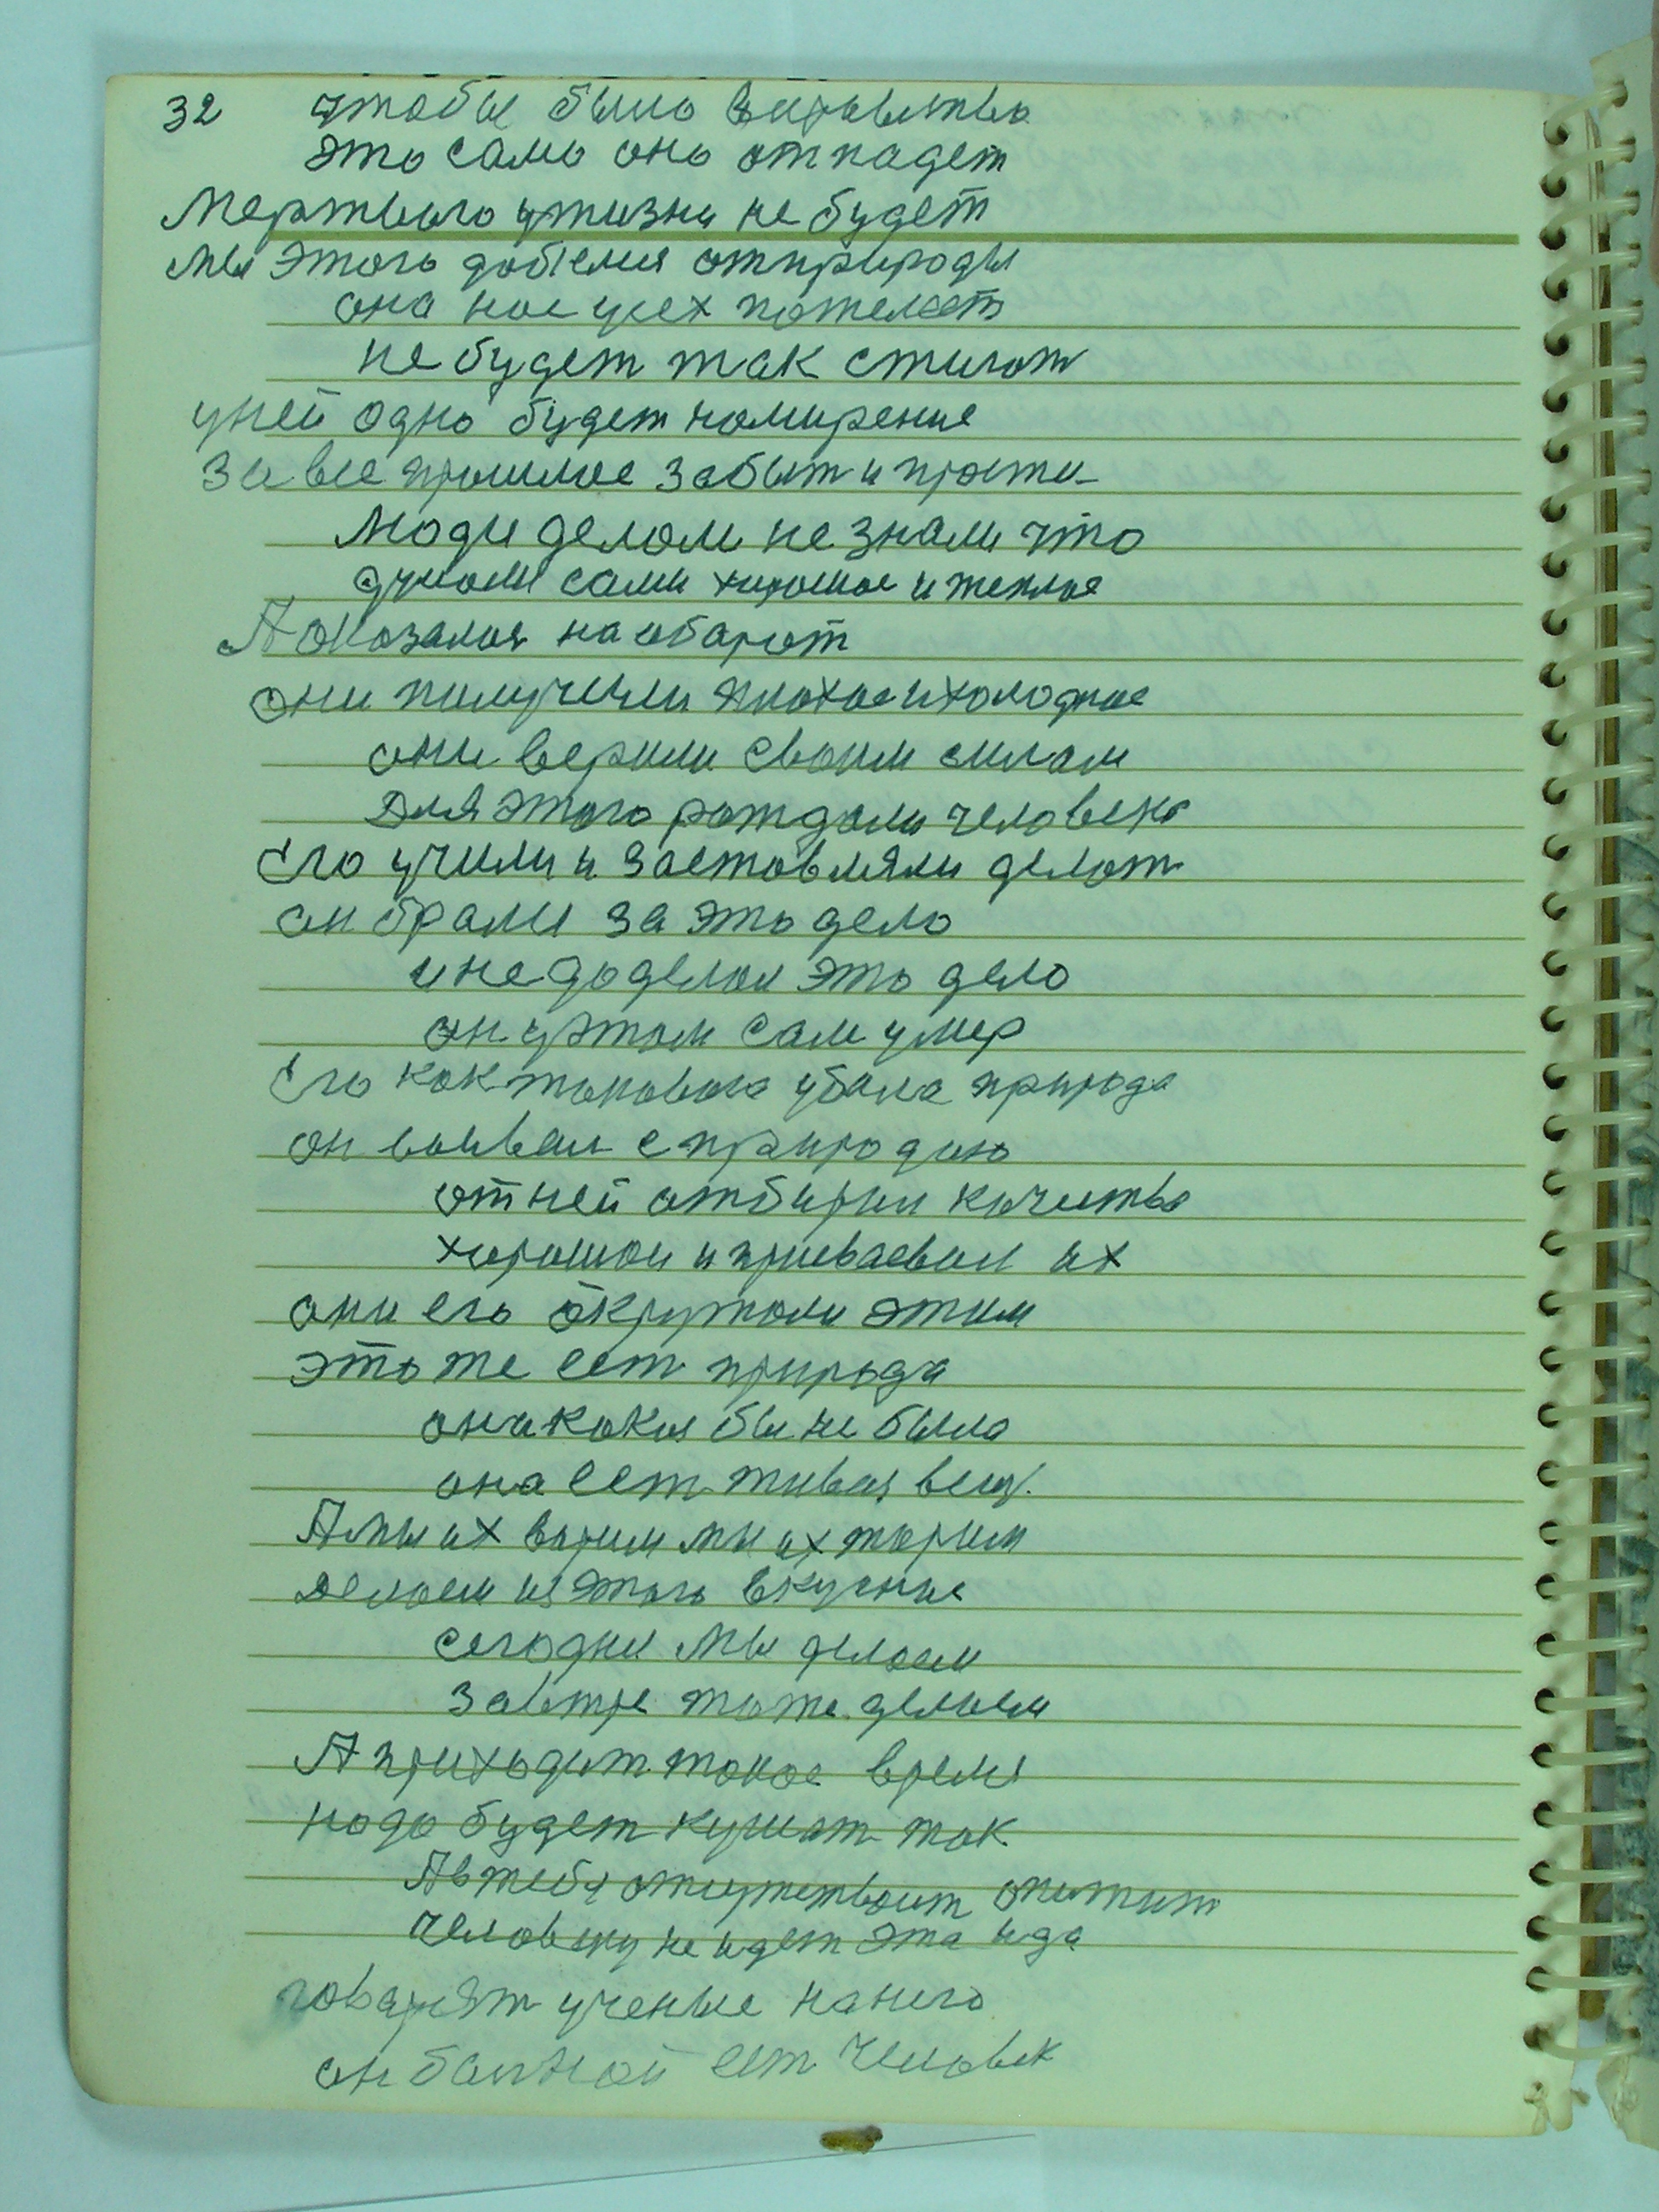 32 чтобы было
это само оно отпадет
Мертвого у жизни не будет
мы этого добемся от природы
она нас усех пожелеет
не будет так стигат
у ней одно будет намирение
За все прошлое забыт и прости
Люди делом не знали что
думали сами хорошое и теплое
А оказалос на обарот
они получили плохое и холодное
они верили своим силам
Для этого рождали человека
Его учили и заставляли делат
он брался за это дело
и не доделал это дело
он у этом сам умер
Его как такового убила природа
он воевал с природаю
от ней отбирал качества
хорошои и присваевал их
они его окружали этим
это же ест природа
она какая бы не была
она ест живая вещ.
А мы их варим мы их жарим
делаем из этого вкусние
сегодни мы делаем
завтре тоже делаем
А приходит такое время
надо будет кушат так
А в тебя отсутствоит опитит
человеку не идет эта ида
говарят ученые на него
он балной ест человек